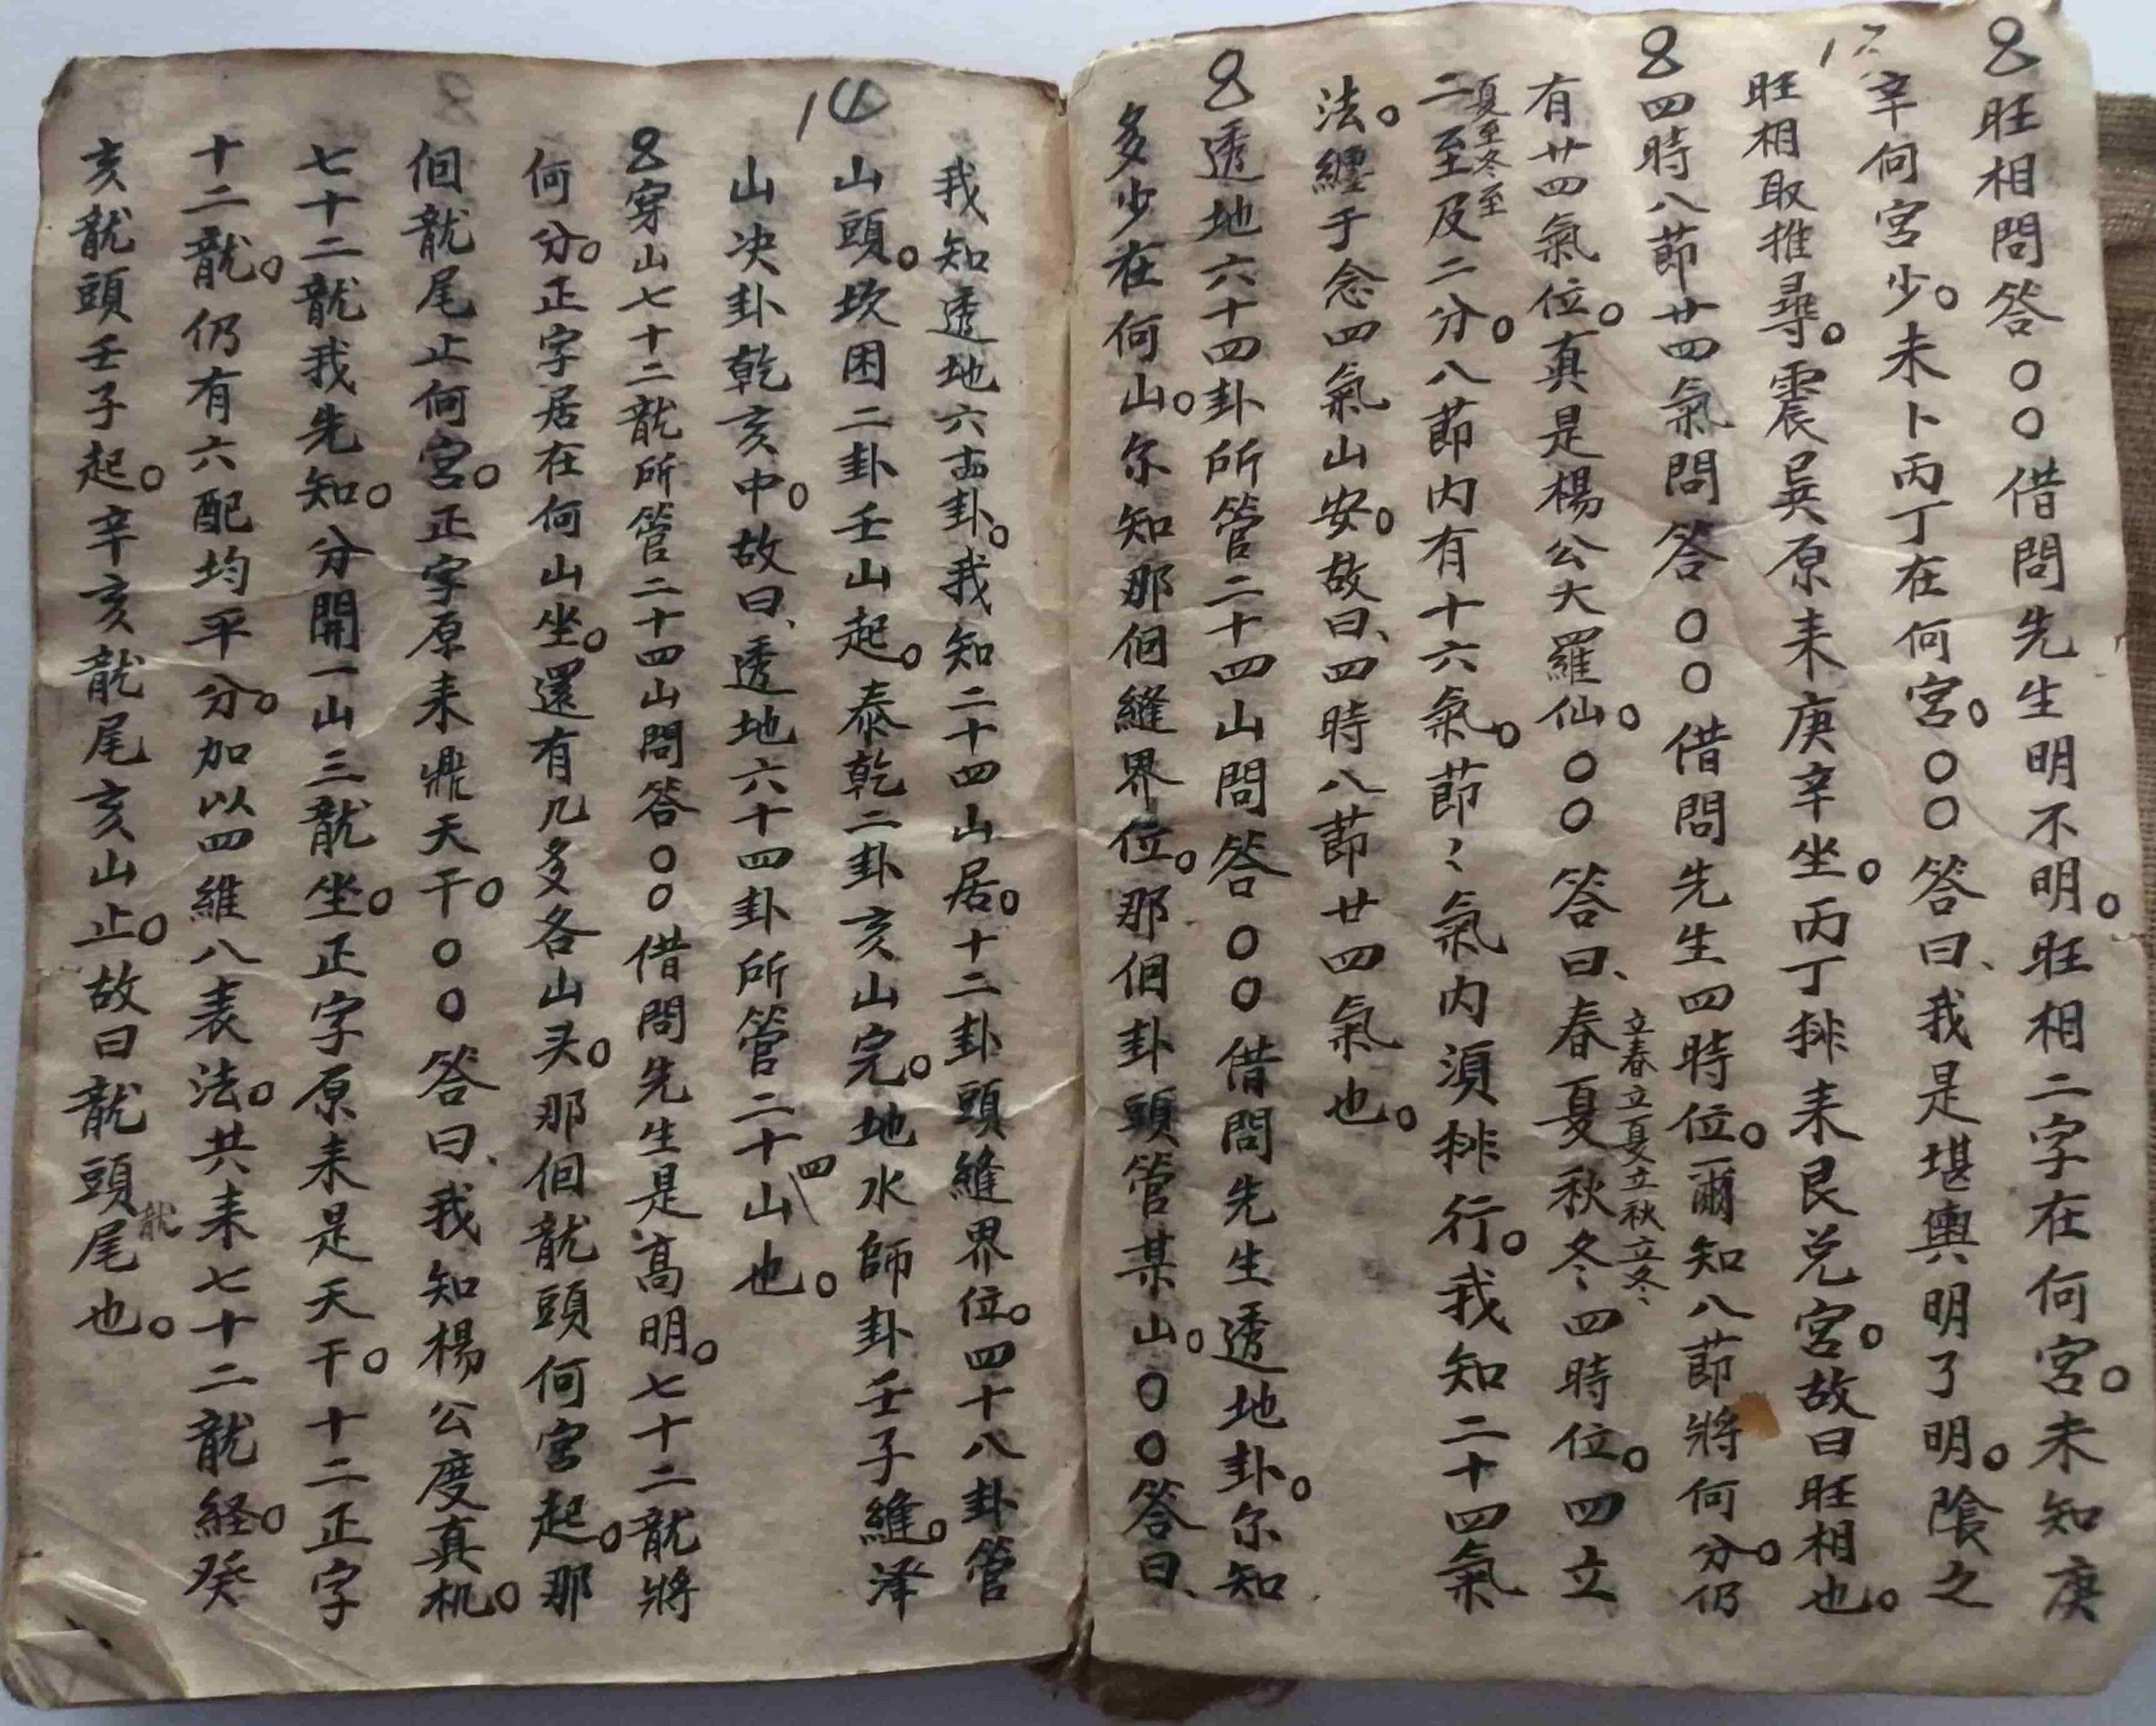 旺相問答○○借問先生明不明。旺相二字在何宮。未知庚
辛何宮少。未卜丙丁在何宮。○○答曰、我是堪輿明了明。陰之
旺相取推尋。震巽原来庚辛坐。丙丁排来艮兌宮。故曰旺相也。
四時八節廿四氣問答○○借問先生四時位。爾知八節將何分。仍
有廿四氣位。真是楊公大羅仙。○○答曰、春夏秋冬四時位。四立
立春立夏立秋立冬、
二至及二分。八節内有十六氣。節々氣内須排行。我知二十四氣
夏至冬至
法。纏手念四氣山安。故曰、四時八節廿四氣也。
透地六十四卦所管二十四山問答○○借問先生透地卦。尔知
多少在何山。尔知那個縫界位。那個卦頭管某山。○○答曰、
我知透地六十四卦。我知二十四山居。十二卦頭縫界位。四十八卦管
14
山頭。坎困二卦壬山起。泰乾二卦亥山完。地水師卦壬子縫。澤
山决卦乾亥中。故曰、透地六十四卦所管二十四山也。
穿山七十二龍所管二十四山問答○○借問先生是高明。七十二龍將
何分。正字居在何山坐。還有几多各山头。那個龍頭何宮起。那
個龍尾止何宮。正字原来鼎天干。○○答曰、我知楊公度真机。
七十二龍我先知。分開一山三龍坐。正字原来是天干。十二正字
十二龍。仍有六配均平分。加以四維八表法。共来七十二龍経。癸
亥龍頭壬子起。辛亥龍尾亥山止。故曰龍頭龍尾也。